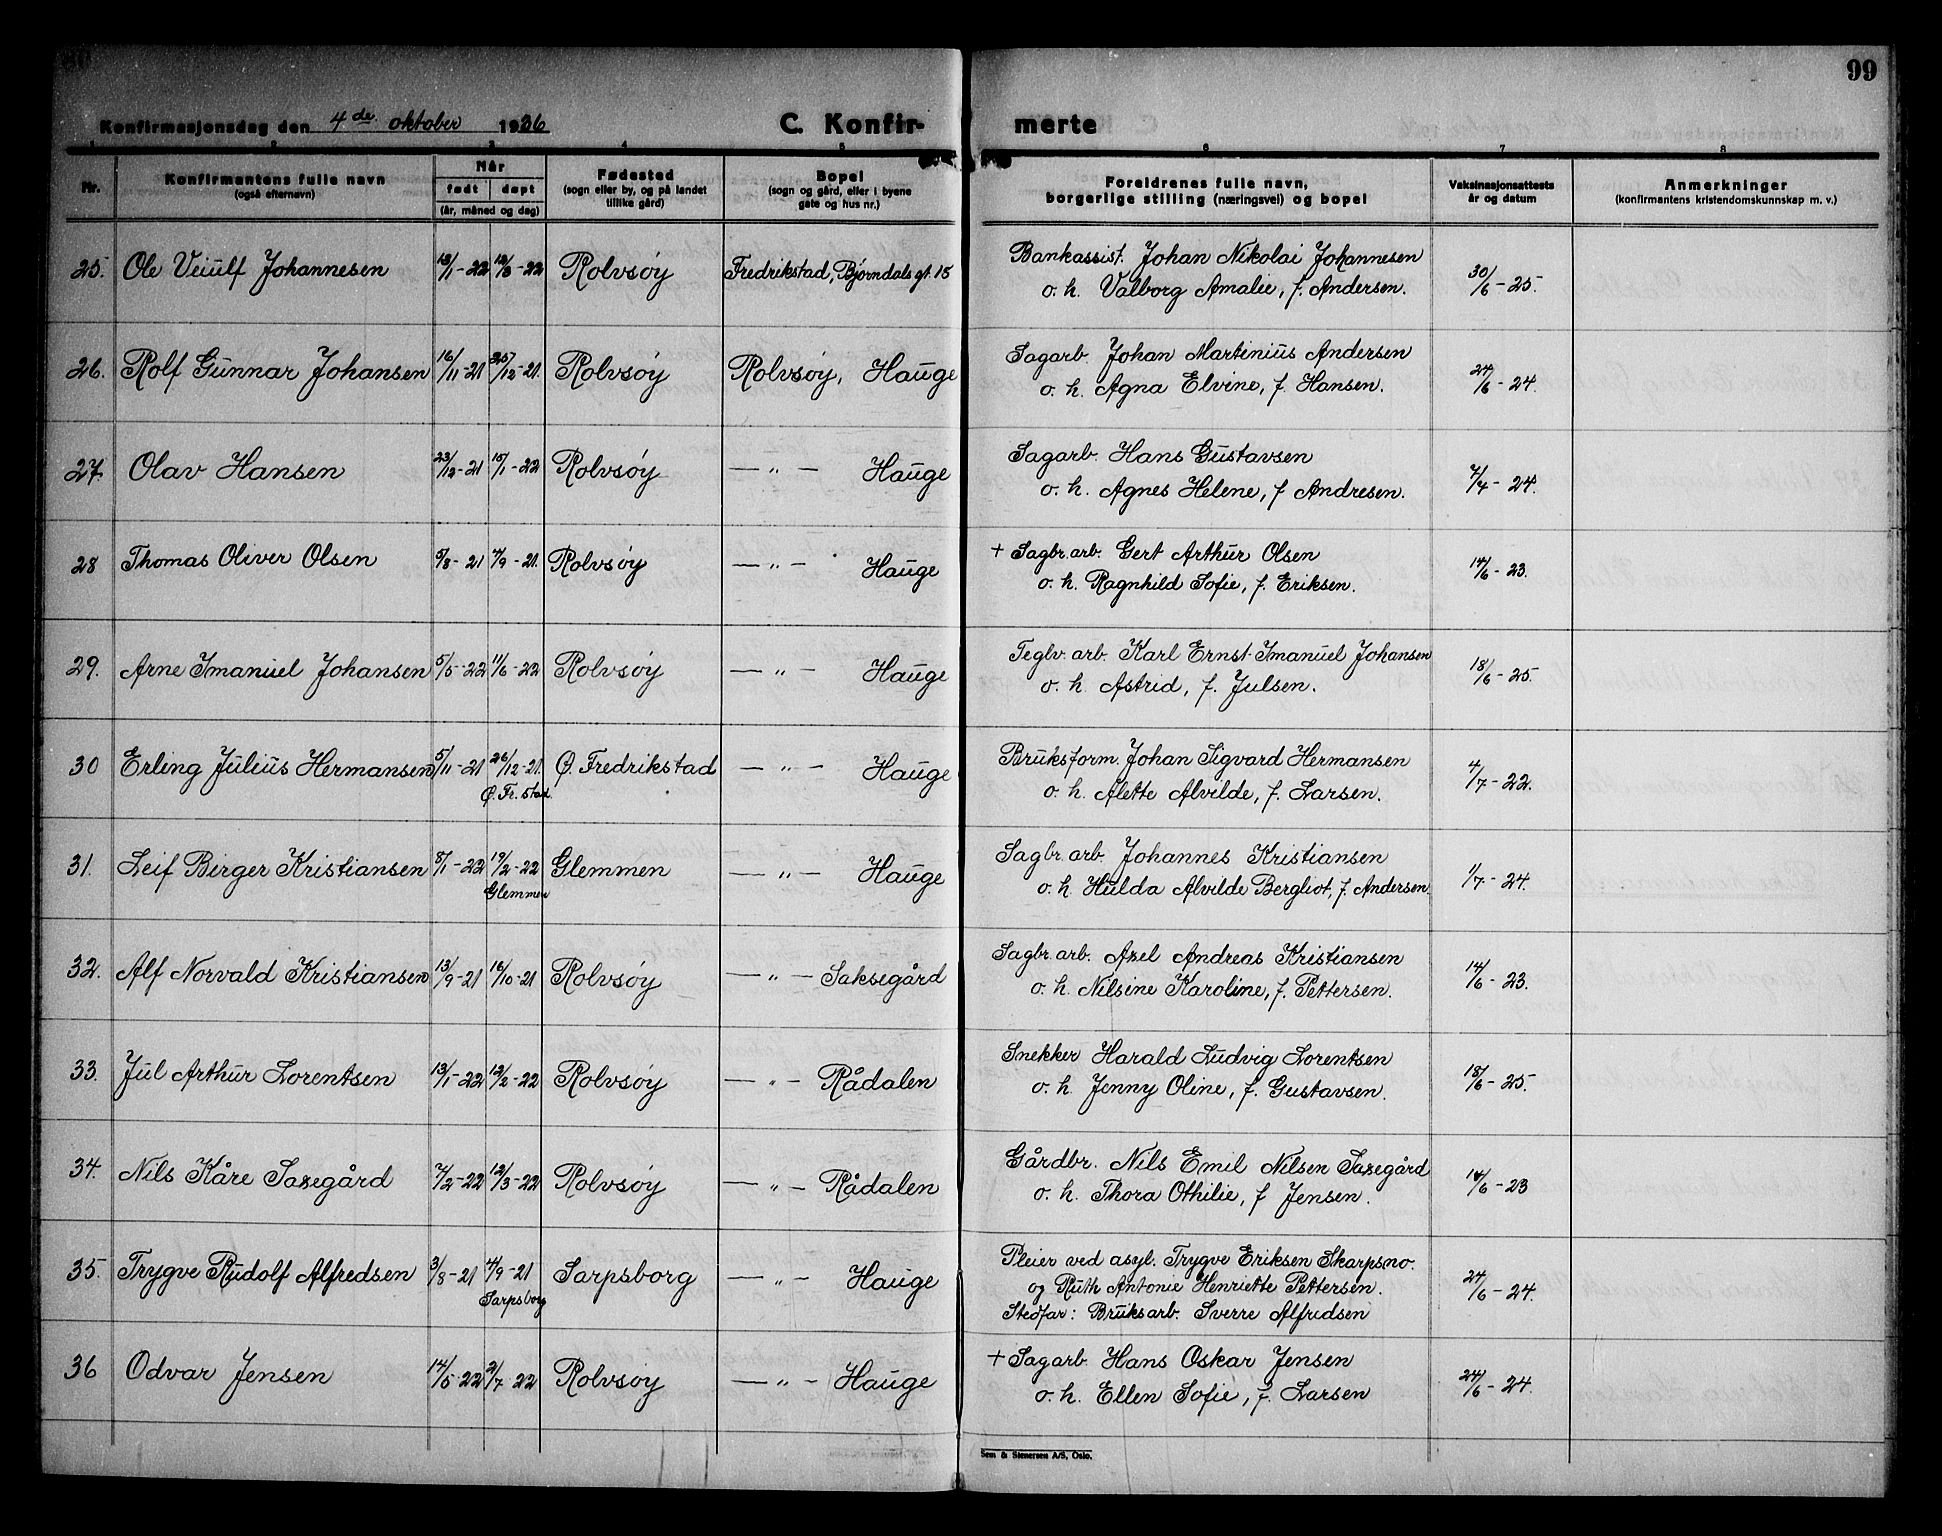 99
Konfirmasjonsdag den 4de oktober 1936
C. Konfir- merte
1 2 3 4 5 6 7 8
Nr. | Konfirmantens fulle navn (også efternavn) | Når født døpt (år, måned og dag) | Fødested (sogn eller by, og på landet tillike gård) | Bopel (sogn og gård, eller i byene gate og hus nr.) | Foreldrenes fulle navn, borgerlige stilling (næringsvei) og bopel | Vaksinasjonsattests år og datum | Anmerkninger (konfirmantens kristendomskunnskap m. v.)
25. Ole Veiulf Johannesen 13/1-22 12/3-22 Rolvsøy Fredrikstad, Bjørndals gt. 15 Bankassist. Johan Nikolai Johannesen 30/6-25.
o. h. Valborg Amalie, f. Andersen.
26. Rolf Gunnar Johansen 16/11-21 25/12-21. Rolvsøy Rolvsøy, Hauge Sagarb. Johan Martinius Andersen 24/6-24.
o. h. Agna Elvine, f. Hansen.
27. Olav Hansen 23/12-21 15/1-22 Rolvsøy — " — Hauge Sagarb. Hans Gustavsen 7/4-24.
o. h. Agnes Helene, f Andresen.
28 Thomas Oliver Olsen 5/8-21 4/9-21. Rolvsøy — " — Hauge + Sagbr. arb. Gert Arthur Olsen 14/6-23.
o. h. Ragnhild Sofie, f. Eriksen.
29. Arne Imanuel Johansen 5/5-22 11/6-22 Rolvsøy — " — Hauge Teglv. arb. Karl Ernst Imanuel Johansen 18/6-25.
o. h Astrid, f. Julsen.
30 Erling Julius Hermansen 5/11-21 26/12-21. Ø. Fredrikstad — " — Hauge Bruksform. Johan Sigvard Hermansen 4/7-22.
Ø. Fr. stad. o. h. Alette Alvilde, f. Larsen.
31. Leif Birger Kristiansen 8/1-22 19/2-22 Glemmen — " — Hauge Sagbr. arb. Johannes Kristiansen 1/7-24.
Glemmen o. h. Hulda Alvilde Bergliot, f. Andersen.
32. Alf Norvald Kristiansen 13/9-21 16/10-21 Rolvsøy — " — Saksegård Sagbr. arb. Axel Andreas Kristiansen 14/6-23.
o. h. Nilsine Karoline, f. Pettersen.
33. Jul Arthur Lorentsen 13/1-22 12/2-22 Rolvsøy — " — Rådalen Snekker Harald Ludvig Lorentsen 18/6-25.
o. h. Jenny Oline, f. Gustavsen.
34. Nils Kåre Saxegård 7/2-22 12/3-22 Rolvsøy — " — Rådalen Gårdbr. Nils Emil Nilsen Saxegård 14/6-23
o. h. Thora Othilie, f Jensen.
35. Trygve Rudolf Alfredsen 3/8-21 4/9-21 Sarpsborg — " — Hauge Pleier ved asyl. Trygve Eriksen Skarpsno. 24/6-24.
Sarpsborg og Ruth Antonie Henriette Pettersen.
Stedfar: Bruksarb. Sverre Alfredsen
36 Odvar Jensen 14/5-22 2/7 22 Rolvsøy — " — Hauge + Sagarb. Hans Oskar Jensen 24/6-24.
o. h. Ellen Sofie, f. Larsen
Sem & Stenersen A/S, Oslo.